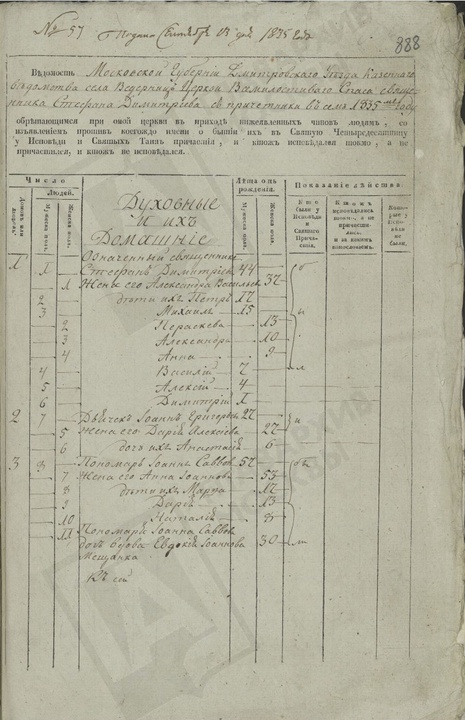 № 57 Подана Сентябр 23 дня 1835 года
888
Вѣдомость Московской Губерніи Дмитровскаго Уѣзда Казеннаго
вѣдомства села Ведерницъ Церкви Всемилостиваго Спаса свяще
нника Стефана Димитріева съ причетники въ семъ 1835мъ году
обрѣтающимся при оной церкви въ приходѣ нижеявленныхъ чиновъ людямъ, со
изъявленіемъ противъ коегождо имени о бытіи ихъ въ Святую Четыредесятницу
у Исповѣди и Святыхъ Таинъ причастія, и ктожъ исповѣдался токмо, а не
причастился, и ктожъ не исповѣдался.
Число
Людей.
Мужеска полу.
Женска полу.
Духовные
и ихъ
Домашніе
Лѣта отъ рожденія.
Мужеска полу.
Женска полу.
Показаніе дѣйства:
Кто были у Исповѣди и Святаго Причастія.
Означенный священникъ
1 1 Стефанъ Димитріевъ 44
1 Жена его Александра Васильева 37
2 дѣти ихъ Петръ 17
3 Михаилъ 15
2 Параскева 13
3 Александра 10
4 Анна 9
4 Василій 7
5 Алексій 4
6 Димитрій 1
2 7 Дьячекъ Іоаннъ Григорьевъ 27
5 Жена его Дарія Алексіева 27
6 дочь ихъ Анастасія 6
3 8 Пономарь Іоаннъ Саввовъ 52
7 Жена его Анна Іоаннова 53
8 дѣти ихъ Марѳа 17
9 Дарія 13
10 Наталія 8
11 Пономаря Іоанна Саввова
дочь вдова Евдокія Іоаннова 30
Мещанка